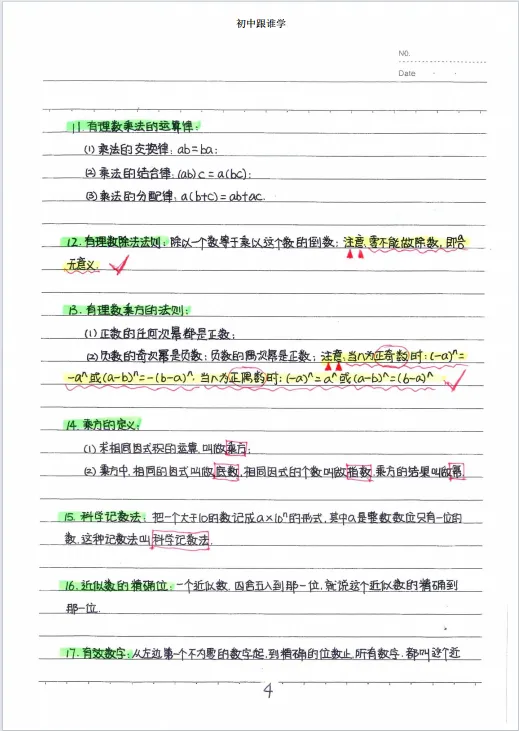 初中跟谁学
NO.
Date
11 有理数乘法的运算律:
(1) 乘法的交换律: ab=ba;
(2) 乘法的结合律: (ab)c=a(bc);
(3) 乘法的分配律: a(b+c)=ab+ac.
12. 有理数除法法则: 除以一个数等于乘以这个数的倒数; 注意, 零不能做除数, 即a/0
无意义.
13. 有理数乘方的法则:
(1) 正数的任何次幂都是正数;
(2) 负数的奇次幂是负数; 负数的偶次幂是正数; 注意: 当n为正奇数时: (-a)ⁿ=
-aⁿ或(a-b)ⁿ=-(b-a)ⁿ, 当n为正偶数时: (-a)ⁿ=aⁿ或(a-b)ⁿ=(b-a)ⁿ
14. 乘方的定义:
(1) 求相同因式积的运算, 叫做乘方;
(2) 乘方中, 相同的因式叫做底数, 相同因式的个数叫做指数, 乘方的结果叫做幂.
15. 科学记数法: 把一个大于10的数记成a×10ⁿ的形式, 其中a是整数数位只有一位的
数, 这种记数法叫科学记数法.
16. 近似数的精确位: 一个近似数, 四舍五入到那一位, 就说这个近似数的精确到
那一位.
17. 有效数字: 从左边第一个不为零的数字起, 到精确的位数止, 所有数字, 都叫这个近
4